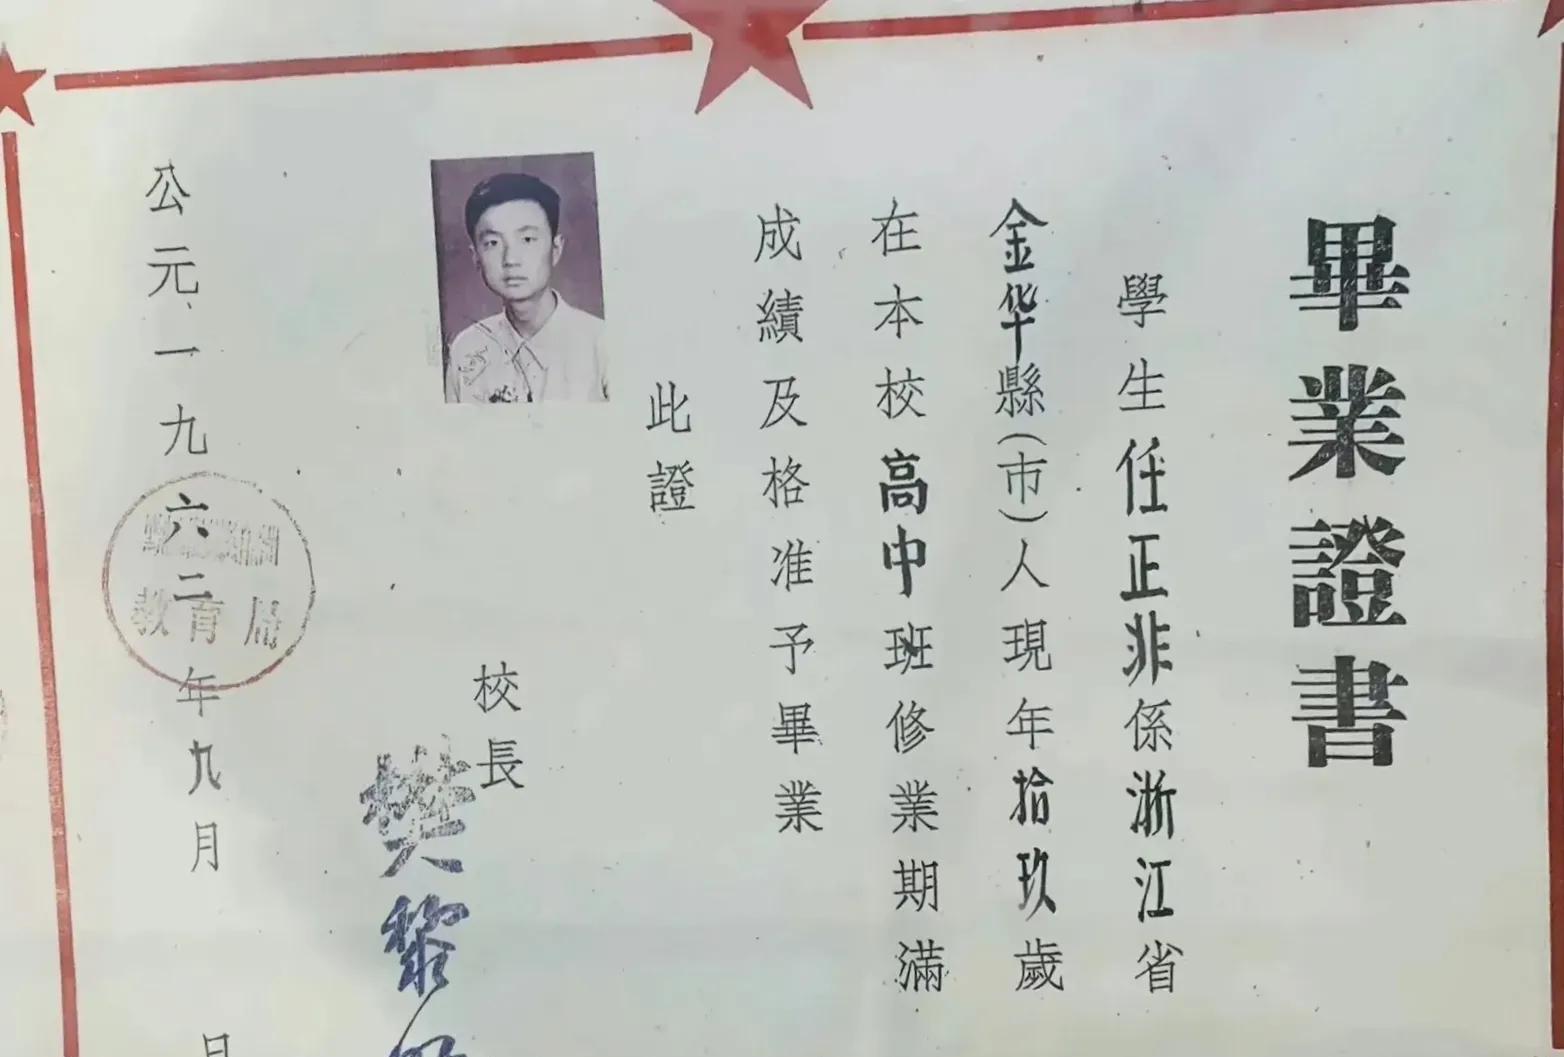 畢業證書
學生任正非係浙江省
金华縣(市)人現年拾玖歲
在本校高中班修業期滿
成績及格准予畢業
此證
校長
樊黎
公元一九六二年九月
日
教育局